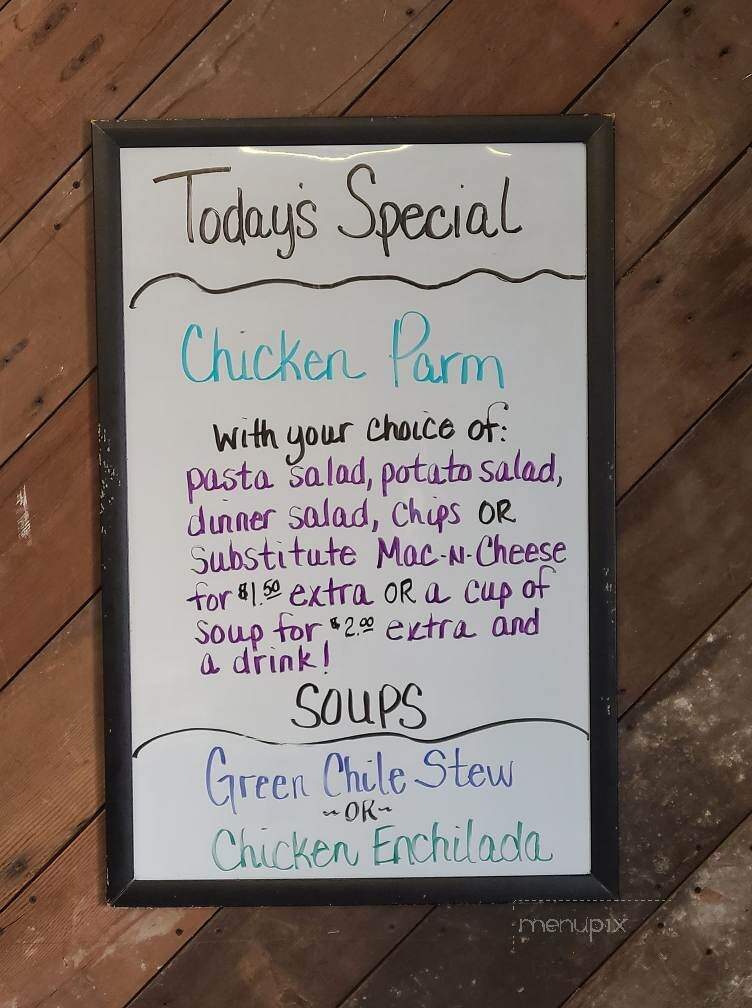 Today's Special
Chicken Parm
with your choice of:
pasta salad, potato salad,
dinner salad, chips OR
Substitute Mac-N-Cheese
for $1.50 extra OR a cup of
soup for $2.00 extra and
a drink!
SOUPS
Green Chile Stew
~OR~
Chicken Enchilada
menupix